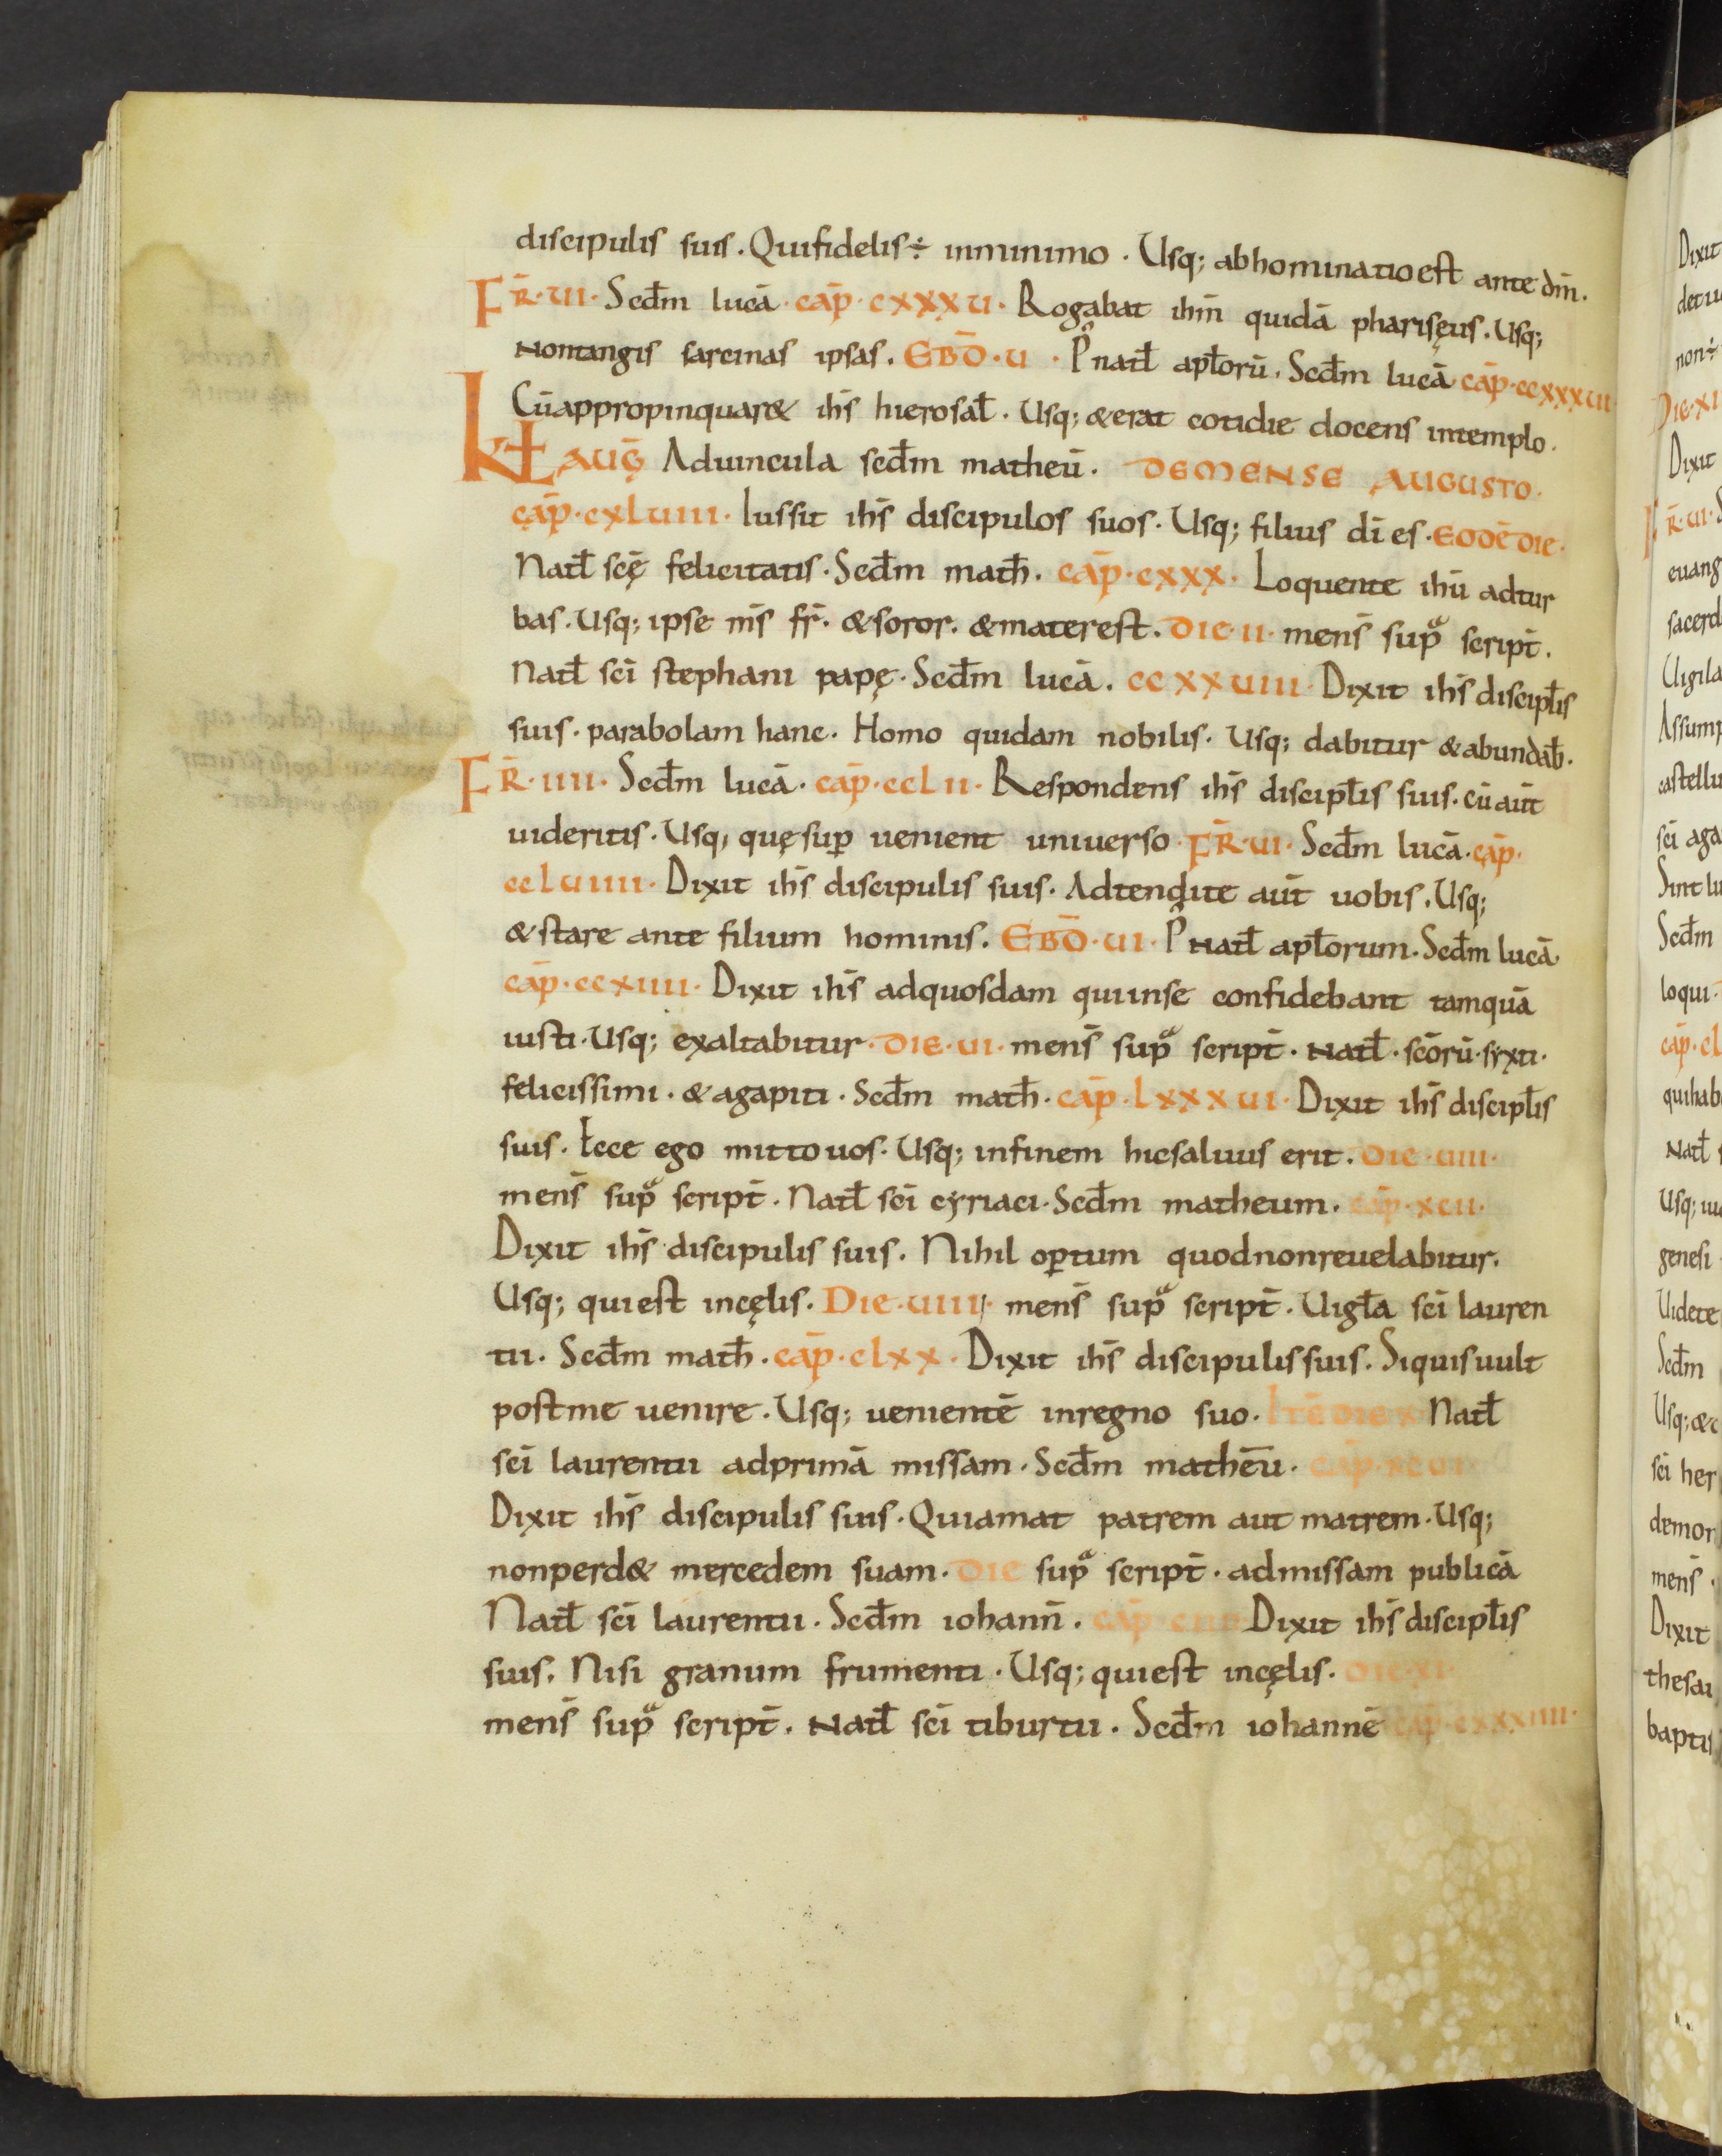 discipulis suis. Quifidelis ÷ inminimo. Usq; abhominatioest ante dm̄.
FR̄·UI· Scd̄m lucā· cap̄·cxxxu· Rogabat ihm̄ quidā pharisęus. Usq;
Nontangis sarcinas ipsas. EBD̄·U· P̂ natł apłorū. Scd̄m lucā cap̄·ccxxxuii
Cūappropinquar& ihs̄ hierosał. Usq; &erat cotidie docens intemplo.
KŁ AUḠ Aduincula scd̄m matheū. DEMENSE AUGUSTO.
cap̄·cxluiii· Iussit ihs̄ discipulos suos. Usq; filius dī es. EODĒ DIE·
Natł scę̄ felicitatis. Scd̄m math̄. cap̄·cxxx· Loquente ihū adtur
bas. Usq; ipse ms̄ fr̄. &soror. &materest. DIE·II· mens̄ supᵃ script̄.
Natł scī stephani papę. Scd̄m lucā. ccxxuiii· Dixit ihs̄ discipłis
suis. parabolam hanc. Homo quidam nobilis. Usq; dabitur &abundab̄.
FR̄·IIII· Scd̄m lucā. cap̄·cclii· Respondens ihs̄ discipłis suis. cū aut̄
uideritis. Usq; quęsup̄ uenient uniuerso· FR̄·UI· Scd̄m lucā. cap̄·
ccluiiii· Dixit ihs̄ discipulis suis. Adtendite aut̄ uobis. Usq;
&stare ante filium hominis. EBD̄·UI· P̂ Natł apłorum. Scd̄m lucā·
cap̄·ccxiiii· Dixit ihs̄ adquosdam quiinse confidebant tamquā
iusti. Usq; exaltabitur· DIE·UI· mens̄ supᵃ script̄. Natł. scōrū·syxti·
felicissimi. &agapiti. Scd̄m math̄. cap̄·lxxxui· Dixit ihs̄ discipłis
suis. Ecce ego mitto uos. Usq; infinem hicsaluus erit. DIE·UIII·
mens̄ supᵃ script̄. Natł scī cyriaci. Scd̄m matheum. cap̄·xcii·
Dixit ihs̄ discipulis suis. Nihil op̄tum quodnonreuelabitur.
Usq; quiest incęlis. DIE·UIIII· mens̄ supᵃ script̄. Uigła scī lauren
tii. Scd̄m math̄. cap̄·clxx· Dixit ihs̄ discipulissuis. Siquisuult
postme uenire. Usq; uenientē inregno suo. ITĒ DIE X Natł
scī laurentii adprimā missam. Scd̄m mathēū. cap̄·xcui
Dixit ihs̄ discipulis suis. Quiamat patrem aut matrem. Usq;
nonperd& mercedem suam. DIE supᵃ script̄. admissam publicā
Natł scī laurentii. Scd̄m iohann̄. cap̄ Dixit ihs̄ discipłis
suis. Nisi granum frumenti. Usq; quiest incęlis. DIE·XI·
mens̄ supᵃ script̄. Natł scī tiburtii. Scd̄m iohannē cap̄·cxxxiiii·
Dixit
non÷
DIE·XI
Dixit
FR̄·UI·S
euang
sacerd
Uigila
Assump
castellu
scī aga
Sint lu
Scd̄m
loqui·
cap̄·cl
quihab
Natł
Usq;
genesi
Uidete
Scd̄m
Usq; &
scī her
demon
mens̄
Dixit
thesau
baptis